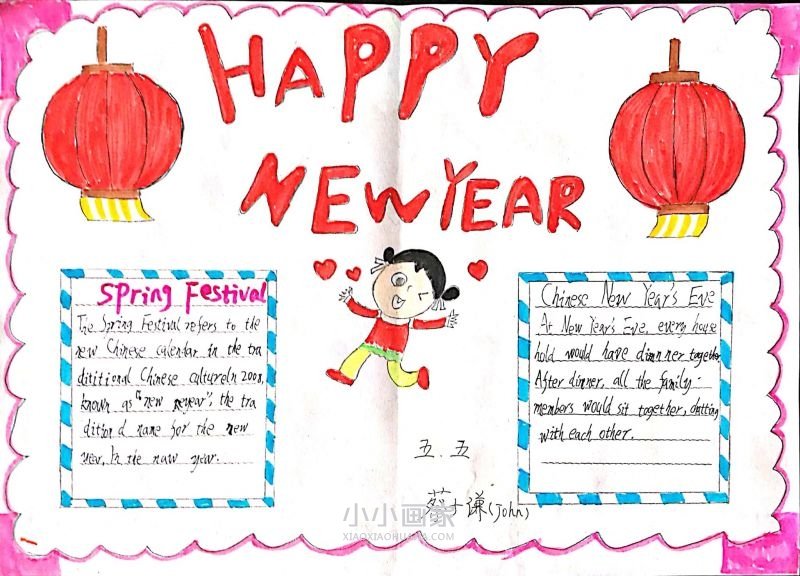 HAPPY
NEW YEAR
Spring Festival
The Spring Festival refers to the
new Chinese calendar in the tra
dititional Chinese cultureIn 2008,
known as "new neyear", the tra
dition d name for the new
year, In the naw year.
Chinese New Year's Eve
At New Year's Eve, every house
hold would have dinnner together
After dinner, all the family
members would sit together, chatting
with each other.
五.五
蔡士谦(John)
小小画家
XIAOXIAOHUAJIA.COM